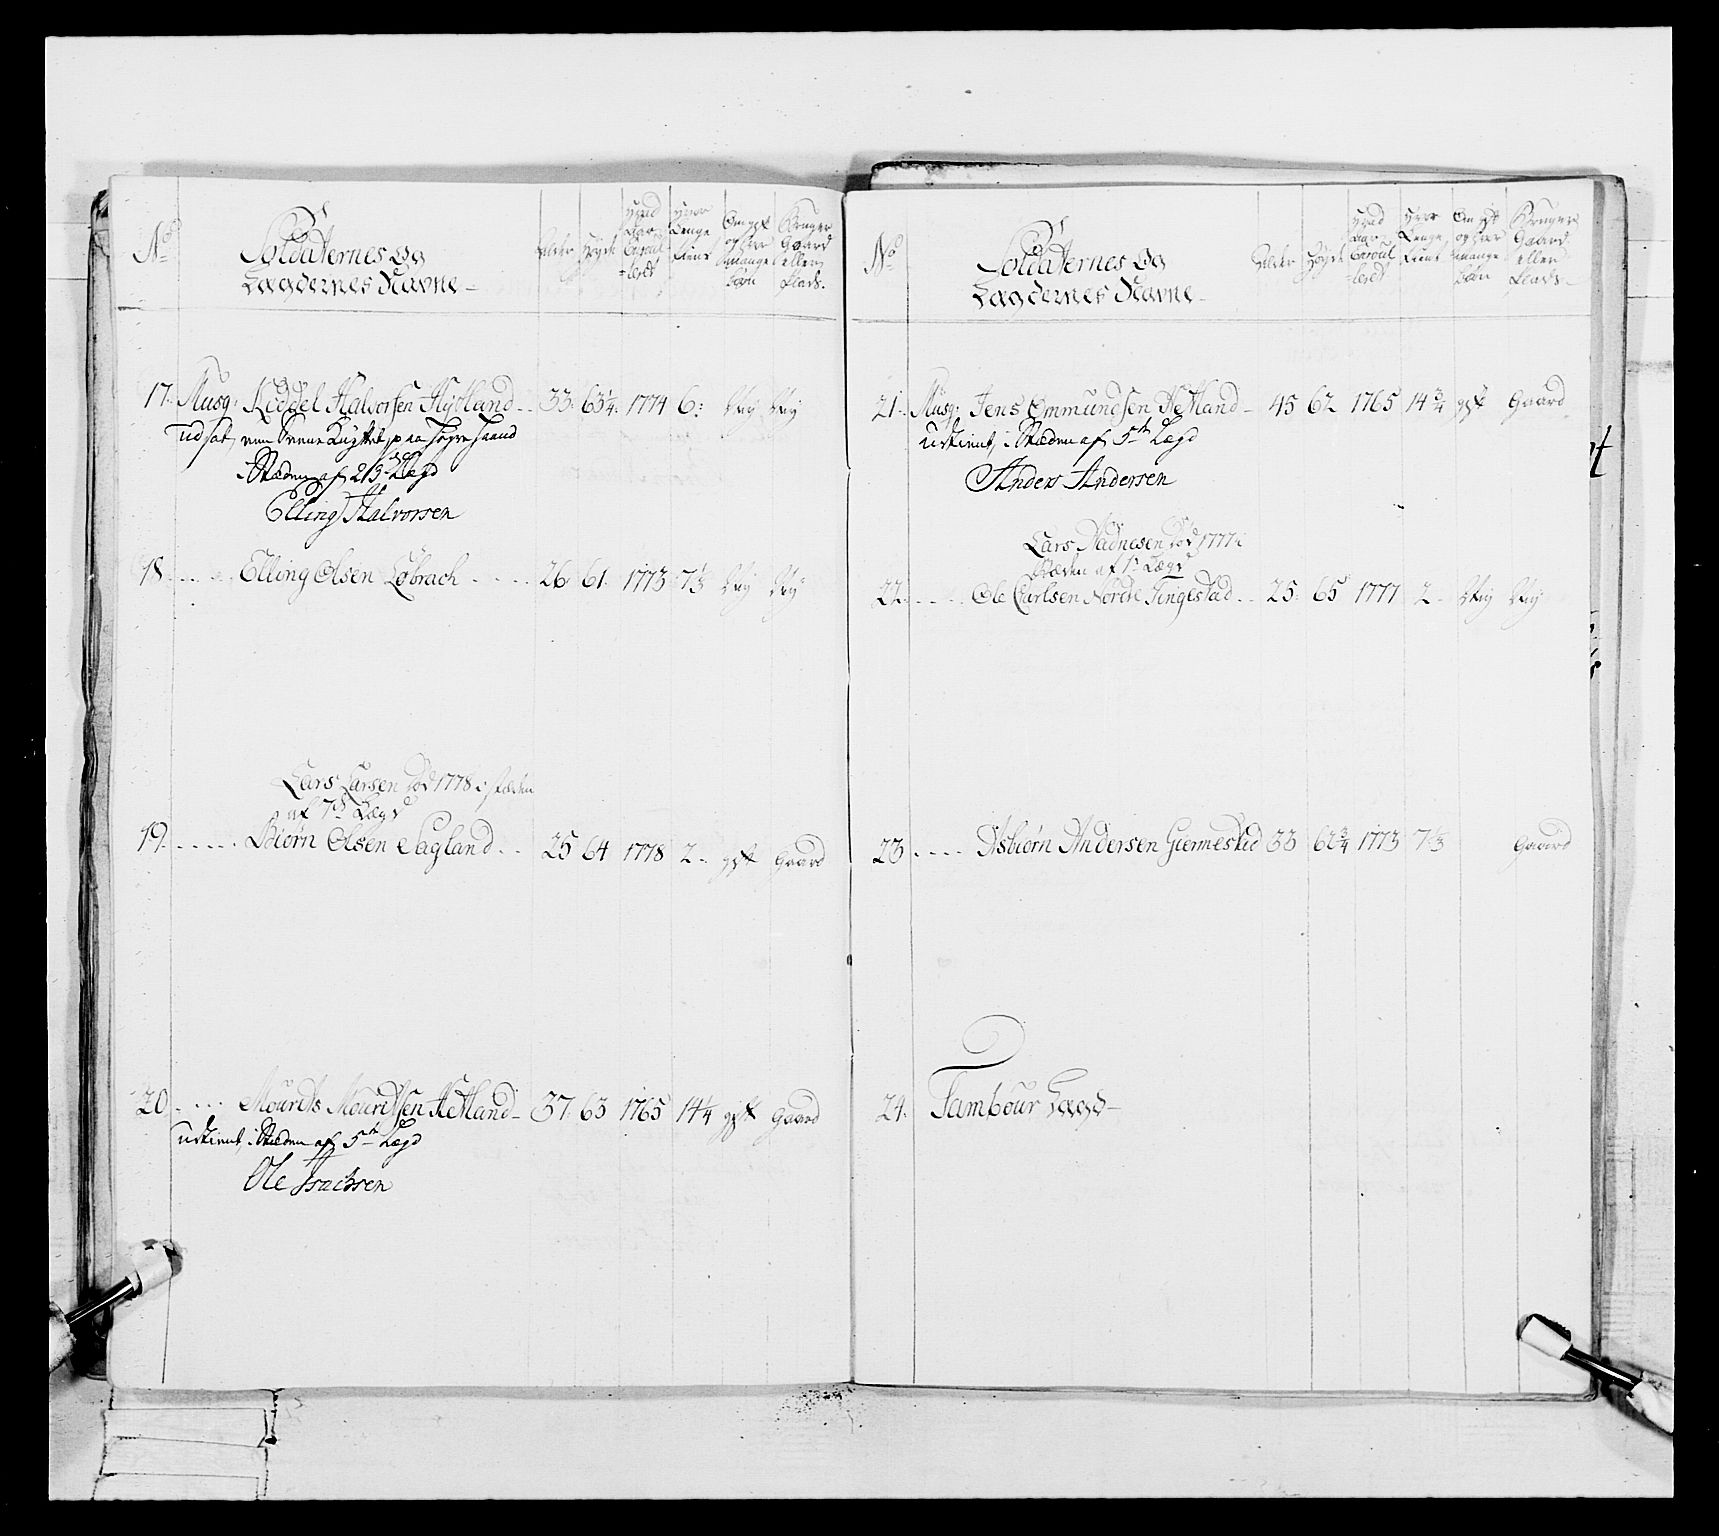 No
Soldaternes og
Lægdernes Navne
Alder
Høyde
Hvad Aar Enroul-leret
Hvor Lenge tient
Om gift og hvor mange Børn
Bruger Gaard eller Plads.
17. Musq: Kiddel Halvorsen Hytland 33. 63¼. 1774 6: Ney Ney
udsat, een Knyttet paa høyre Haand
i Stæden af 213 Lægd
Elling Halvorsen
18. Elling Olsen Løbrach 26. 61. 1773 7⅓ Ney Ney
Lars Larsen død 1778 i stæden
af 7de Lægd
19. Biørn Olsen Sagland 25 64 1778 2 gift Gaard
20. Mourits Mouritsen Hetland 37. 63 1765 14¼ gift Gaard
udtient, i Stæden af 5te Lægd
Ole Isachsen
No
Soldaternes og
Lægdernes Navne
Alder
Høyde
Hvad Aar Enroul-leret
Hvor Lenge tient
Om gift og hvor mange Børn
Bruger Gaard eller Plads
21. Musq: Jens Ommundsen Hetland 45 62 1765 14¾ gift Gaard
udtient, i Stæden af 5te Lægd
Anders Andersen
Lars Aadnesen død 1777 i
Stæden af 1te Lægd
22. Ole Carlsen Nordre Tingestad 25. 65 1777 2 Ney Ney
23 Asbiørn Andersen Giermestad 33 62¾ 1773 7⅓ Gaard
24. Tambour Lægd